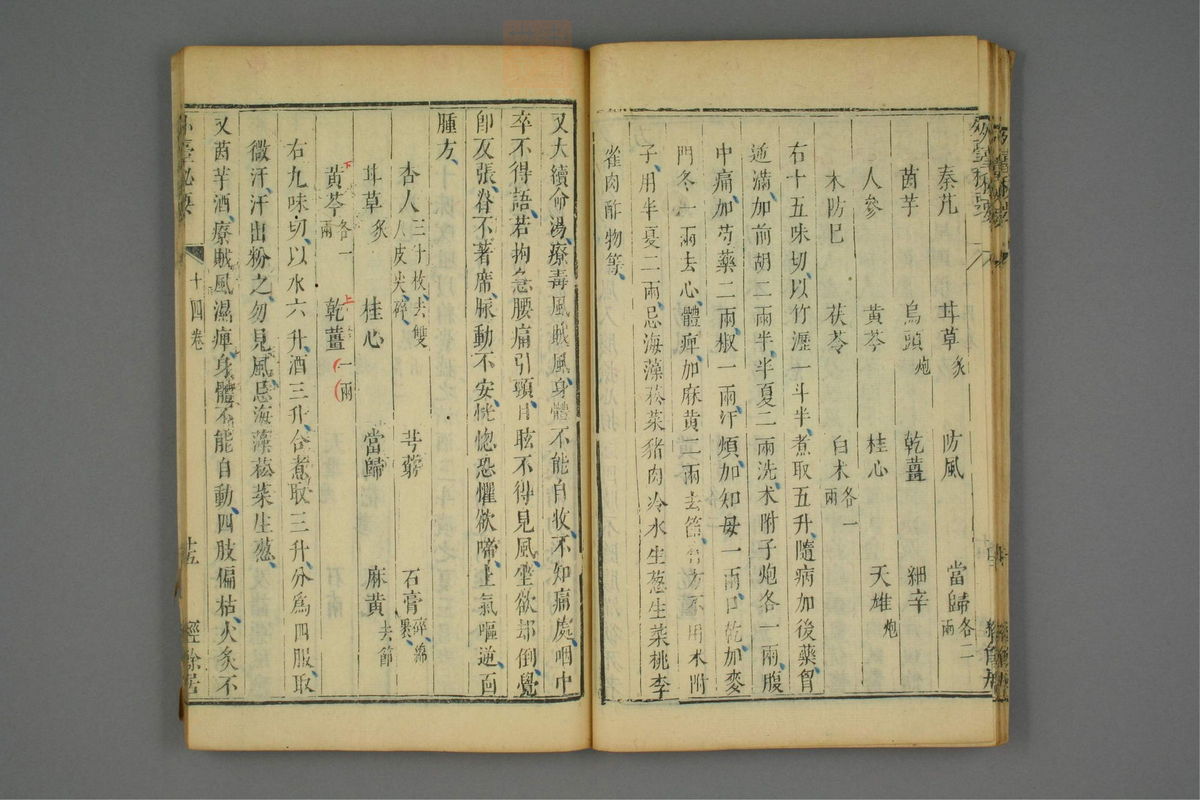 秦艽 甘草炙 防風 當歸各二兩
茵芋 烏頭炮 乾薑 細辛
人參 黃芩 桂心 天雄炮
木防巳 茯苓 白朮各一兩
右十五味切以竹瀝一斗半煮取五升隨病加後藥胷
逆滿加前胡二兩半半夏二兩洗朮附子炮各一兩腹
中痛加芍藥二兩椒一兩汗煩加知母一兩口乾加麥
門冬一兩去心體痺加麻黃二兩去節方不用朮附
子用半夏二兩忌海藻菘菜豬肉冷水生葱生菜桃李
雀肉酢物等
又大續命湯療毒風賊風身體不能自收不知痛處咽中
卒不得語若拘急腰痛引頸目眩不得見風坐欲却倒覺
即反張脊不著席脈動不安恍惚恐懼欲啼上氣嘔逆面
腫方
杏人三十枚去雙人皮尖碎 芎藭 石膏碎綿裹
甘草炙 桂心 當歸 麻黃去節
黃芩各一兩 乾薑一兩
下 上
右九味切以水六升酒三升合煮取三升分爲四服取
微汗汗出粉之勿見風忌海藻菘菜生葱
又茵芋酒療賊風濕痺身體不能自動四肢偏枯火炙不
外臺祕要 十四卷 十五 經餘居